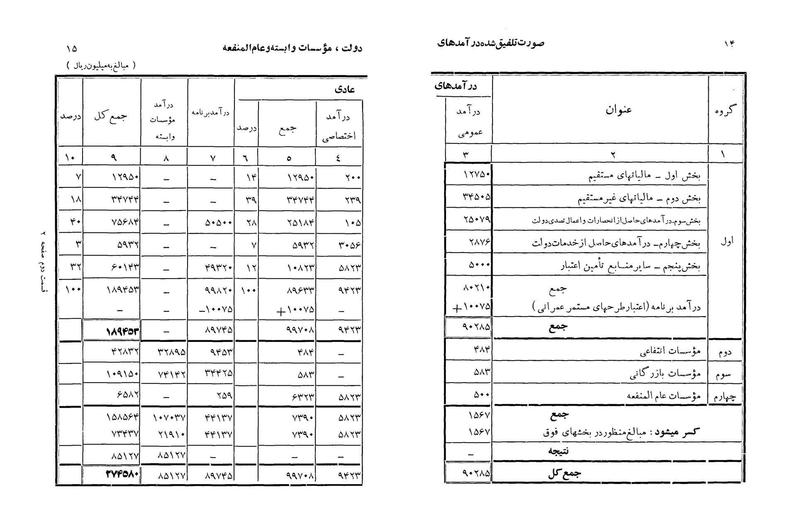 ۱۴
صورت تلفیق شده درآمدهای
درآمدهای
گروه عنوان درآمد عمومی
۱ ۲ ۳
اول
بخش اول – مالیاتهای مستقیم ۱۲۷۵۰
بخش دوم – مالیاتهای غیر مستقیم ۳۴۵۰۵
بخش سوم– درآمدهای حاصل از انحصارات و اعمال تصدی دولت ۲۵۰۷۹
بخش چهارم– درآمدهای حاصل از خدمات دولت ۲۸۷۶
بخش پنجم – سایر منابع تأمین اعتبار ۵۰۰۰
جمع ۸۰۲۱۰
درآمد برنامه (اعتبار طرحهای مستمر عمرانی) ۱۰۰۷۵+
جمع ۹۰۲۸۵
دوم مؤسسات انتفاعی ۴۸۴
سوم مؤسسات بازرگانی ۵۸۳
چهارم مؤسسات عام المنفعه ۵۰۰
جمع ۱۵۶۷
کسر میشود : مبالغ منظور در بخشهای فوق ۱۵۶۷
نتیجه –
جمع کل ۹۰۲۸۵
دولت ، مؤسسات وابسته و عام المنفعه
۱۵
( مبالغ به میلیون ریال )
عادی
درآمد اختصاصی جمع درصد درآمد برنامه درآمد مؤسسات وابسته جمع کل درصد
۴ ۵ ۶ ۷ ۸ ۹ ۱۰
۲۰۰ ۱۲۹۵۰ ۱۴ – – ۱۲۹۵۰ ۷
۲۳۹ ۳۴۷۴۴ ۳۹ – – ۳۴۷۴۴ ۱۸
۱۰۵ ۲۵۱۸۴ ۲۸ ۵۰۵۰۰ – ۷۵۶۸۴ ۴۰
۳۰۵۶ ۵۹۳۲ ۷ – – ۵۹۳۲ ۳
۵۸۲۳ ۱۰۸۲۳ ۱۲ ۴۹۳۲۰ – ۶۰۱۴۳ ۳۲
۹۴۲۳ ۸۹۶۳۳ ۱۰۰ ۹۹۸۲۰ – ۱۸۹۴۵۳ ۱۰۰
– ۱۰۰۷۵+ ۱۰۰۷۵– – –
۹۴۲۳ ۹۹۷۰۸ ۸۹۷۴۵ – ۱۸۹۴۵۳
– ۴۸۴ ۹۴۵۳ ۳۲۸۹۵ ۴۲۸۳۲
– ۵۸۳ ۳۴۴۲۵ ۷۴۱۴۲ ۱۰۹۱۵۰
۵۸۲۳ ۶۳۲۳ ۲۵۹ – ۶۵۸۲
۵۸۲۳ ۷۳۹۰ ۴۴۱۳۷ ۱۰۷۰۳۷ ۱۵۸۵۶۴
۵۸۲۳ ۷۳۹۰ ۴۴۱۳۷ ۲۱۹۱۰ ۷۳۴۳۷
– – – ۸۵۱۲۷ ۸۵۱۲۷
۹۴۲۳ ۹۹۷۰۸ ۸۹۷۴۵ ۸۵۱۲۷ ۲۷۴۵۸۰
قسمت دوم صفحه ۲